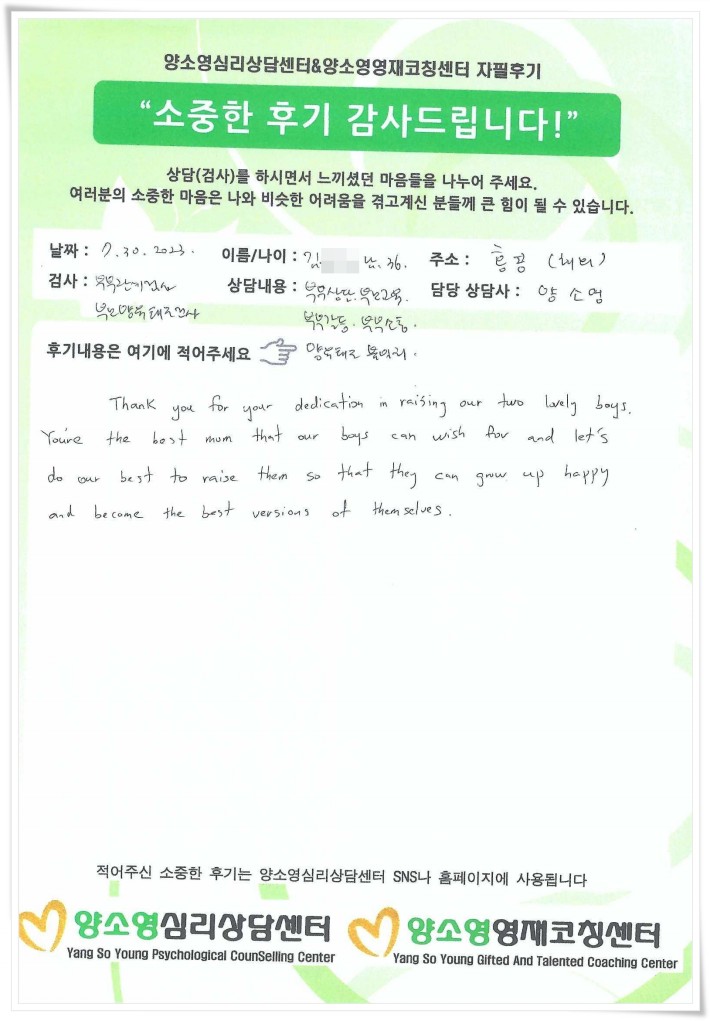 양소영심리상담센터&양소영영재코칭센터 자필후기
“소중한 후기 감사드립니다!”
상담(검사)를 하시면서 느끼셨던 마음들을 나누어 주세요.
여러분의 소중한 마음은 나와 비슷한 어려움을 겪고계신 분들께 큰 힘이 될 수 있습니다.
날짜 : 7.30.2023. 이름/나이 : 김 남.36. 주소 : 홍콩 (해외)
검사 : 부부관계검사 상담내용 : 부부상담.부모교육. 담당 상담사 : 양소영
부모양육태도검사 부부갈등.부부소통.
후기내용은 여기에 적어주세요 양육태도
Thank you for your dedication in raising our two lovely boys.
You're the best mum that our boys can wish for and let's
do our best to raise them so that they can grow up happy
and become the best versions of themselves.
적어주신 소중한 후기는 양소영심리상담센터 SNS나 홈페이지에 사용됩니다
양소영심리상담센터 양소영영재코칭센터
Yang So Young Psychological CounSelling Center Yang So Young Gifted And Talented Coaching Center